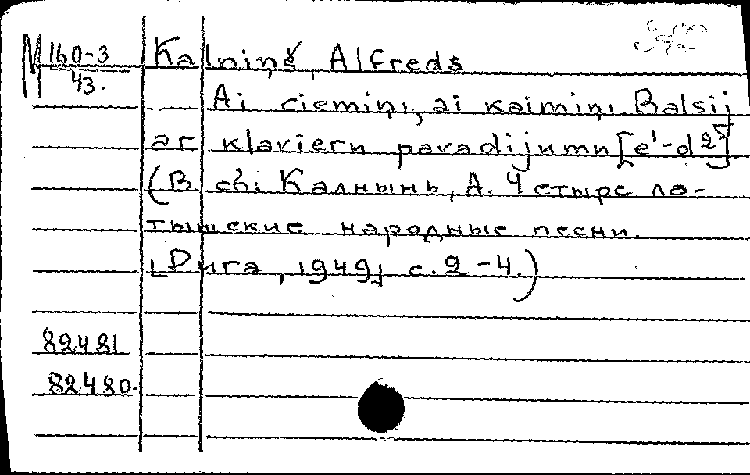 М 160-3
43.
Kalniņš, Alfreds
Ai ciemiņi, ai kaimiņi. Balsij
ar klavieru pavadijumu [e¹-d²]
(В сб: Калнынь, А. Четыре ла-
тышские народные песни.
[Рига, 1949] с. 2-4.)
82481
82480.